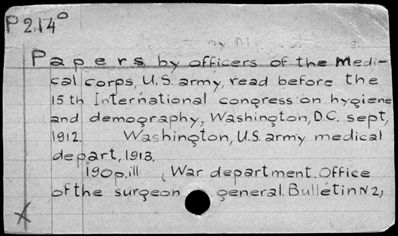 P 2.14°
Papers by officers of the Medi-
cal corps, U.S. army, read before the
15th International congress on hygiene
and demography, Washington, D.C. sept,
1912. Washington, U.S. army medical
depart, 1913.
190p. ill (War department. Office
of the surgeon general. Bulletin N 2)
X